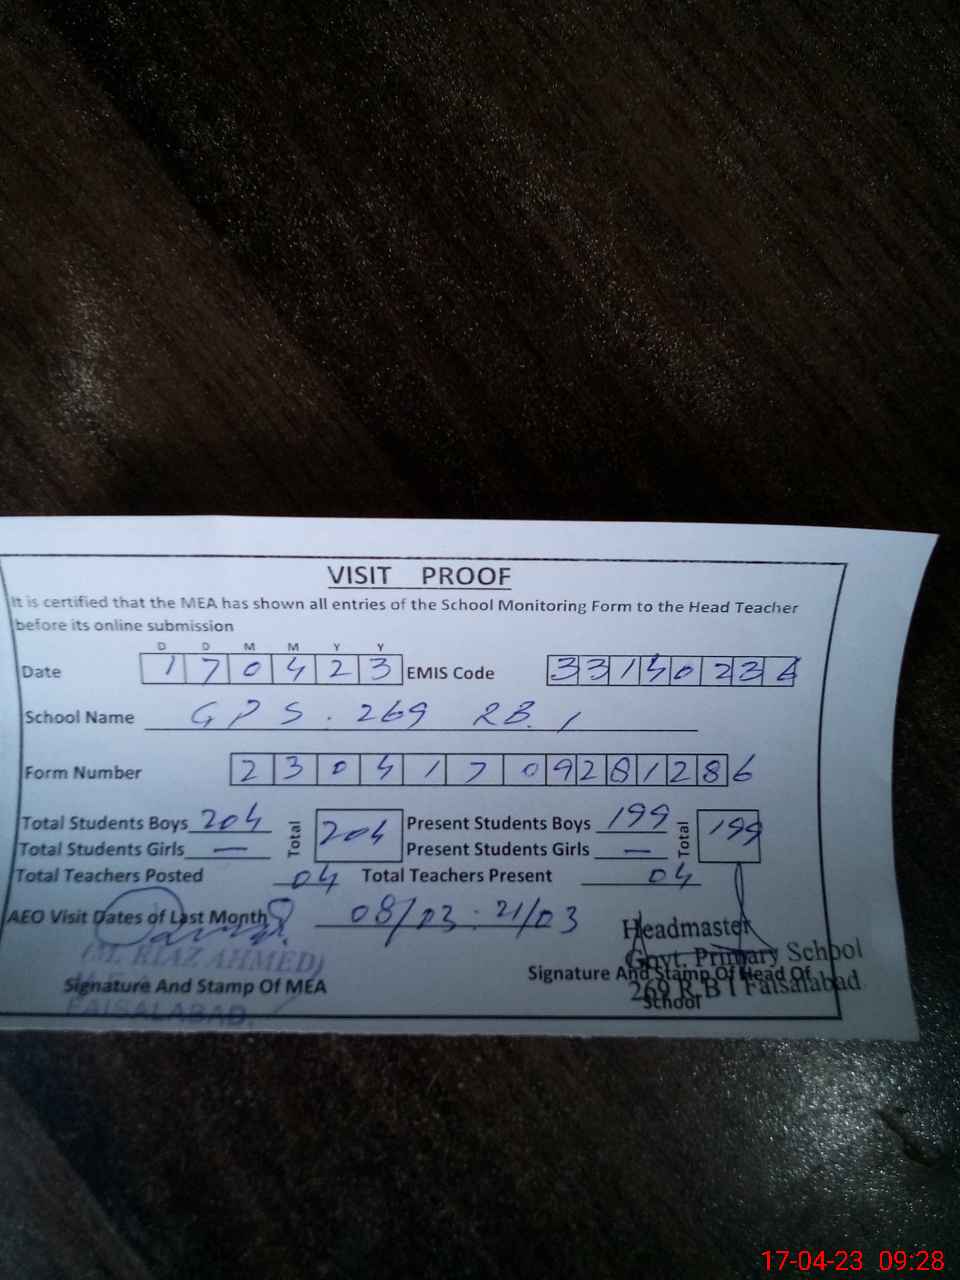 VISIT PROOF
It is certified that the MEA has shown all entries of the School Monitoring Form to the Head Teacher
before its online submission
D D M M Y Y
Date 170423 EMIS Code 33140236
School Name GPS. 269 RB. 1
Form Number 2304170928 1286
Total Students Boys 204 Total 204 Present Students Boys 199 Total 199
Total Students Girls — Present Students Girls —
Total Teachers Posted 04 Total Teachers Present 04
AEO Visit Dates of Last Month 08/03 . 21/03
Headmaster
(M. RIAZ AHMED) Govt. Primary School
Signature And Stamp Of MEA Signature And Stamp Of Head Of
269 R-B I Faisalabad
School
FAISALABAD.
17-04-23 09:28